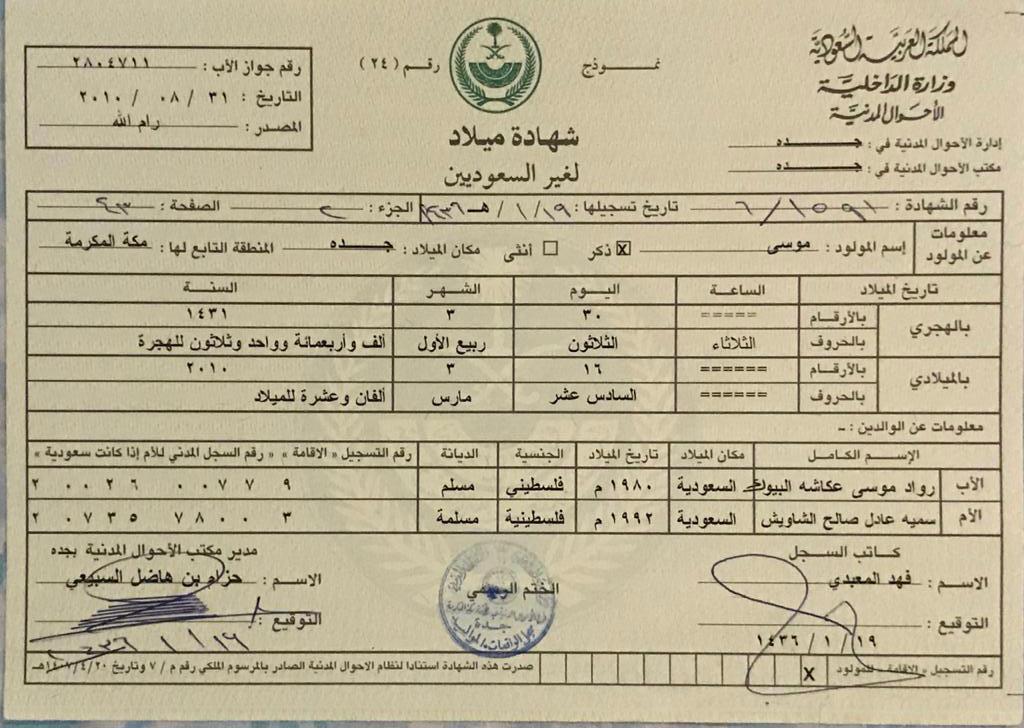 المملكة العربية السعودية
وزارة الداخلية
الأحوال المدنية
إدارة الأحوال المدنية في : جده
مكتب الأحوال المدنية في : جده
نموذج رقم ( ٢٤ )
شهادة ميلاد
لغير السعوديين
رقم جواز الأب : ٢٨٠٤٧١١
التاريخ : ٣١ / ٠٨ / ٢٠١٠
المصدر : رام الله
رقم الشهادة : ٦/١٥٩١ تاريخ تسجيلها : ١٩ / ١ / ١٤٣٦هـ الجزء : ٢ الصفحة : ٤٣
معلومات عن المولود إسم المولود : موسى X ذكر أنثى مكان الميلاد : جده المنطقة التابع لها : مكة المكرمة
تاريخ الميلاد الساعة اليوم الشهر السنة
بالهجري بالأرقام ===== ٣٠ ٣ ١٤٣١
بالحروف الثلاثاء الثلاثون ربيع الأول ألف وأربعمائة وواحد وثلاثون للهجرة
بالميلادي بالأرقام ====== ١٦ ٣ ٢٠١٠
بالحروف ====== السادس عشر مارس ألفان وعشرة للميلاد
معلومات عن الوالدين : ـ
الإسم الكامل مكان الميلاد تاريخ الميلاد الجنسية الديانة رقم التسجيل « الاقامة » « رقم السجل المدني للأم إذا كانت سعودية »
الأب رواد موسى عكاشه السعودية ١٩٨٠ م فلسطيني مسلم ٢٠٠٢٦٠٠٧٧٩
الأم سميه عادل صالح الشاويش السعودية ١٩٩٢ م فلسطينية مسلمة ٢٠٧٣٥٧٨٠٠٣
كاتب السجل
الاسم : فهد المعبدي
التوقيع :
١٩ / ١ / ١٤٣٦
الختم الرسمي
جدة
مدير مكتب الأحوال المدنية بجده
الاسم : حزام بن هاضل السبيعي
التوقيع :
رقم التسجيل « الاقامة » للمولود X
صدرت هذه الشهادة استنادا لنظام الاحوال المدنية الصادر بالمرسوم الملكي رقم م / ٧ وتاريخ ١٤٠٧/٤/٢٠هـ